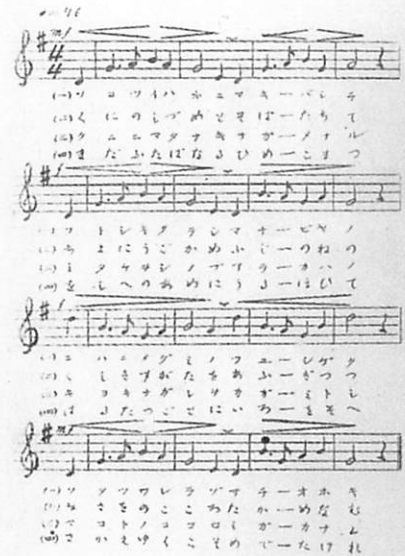 mf
(一)ソコツイハネニマキーバシラ
(二)くにのしづめとそばーたちて
(三)クニニマタナキナガーメナル
(四)まだふたばなるひめーこまつ
f
(一)フトシキタテシマナービヤノ
(二)ちよにうごかぬふじーのねの
(三)ミタケ アラーカハノ
(四)をしへのあめにうるーほひて
f
(一)ニハニメグミノツユーシゲク
(二)くしきすがたをあふーぎつつ
(三)キヨキナガレヲカガーミトシ
(四)はるたつごとにいろーをそへ
mf
(一)ソダツワレラゾサチーオホキ
(二)みさをのこころたかーめなむ
(三)マコトノココロミガーカナム
(四)さかえゆくこそめでーたけれ